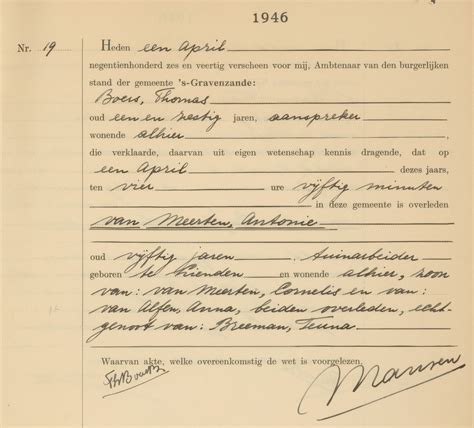 1946
Nr. 19 Heden een April
negentienhonderd zes en veertig verscheen voor mij, Ambtenaar van den burgerlijken
stand der gemeente 's-Gravenzande:
Boers, Thomas
oud een en zestig jaren, aanspreker
wonende alhier
die verklaarde, daarvan uit eigen wetenschap kennis dragende, dat op
een April dezes jaars,
ten vier ure vijftig minuten
in deze gemeente is overleden
van Meerten, Antonie
oud vijftig jaren tuinarbeider
geboren te Lienden en wonende alhier, zoon
van: van Meerten, Cornelis en van:
van Alfen, Anna, beiden overleden, echt-
genoot van: Breeman, Teuna.
Waarvan akte, welke overeenkomstig de wet is voorgelezen.